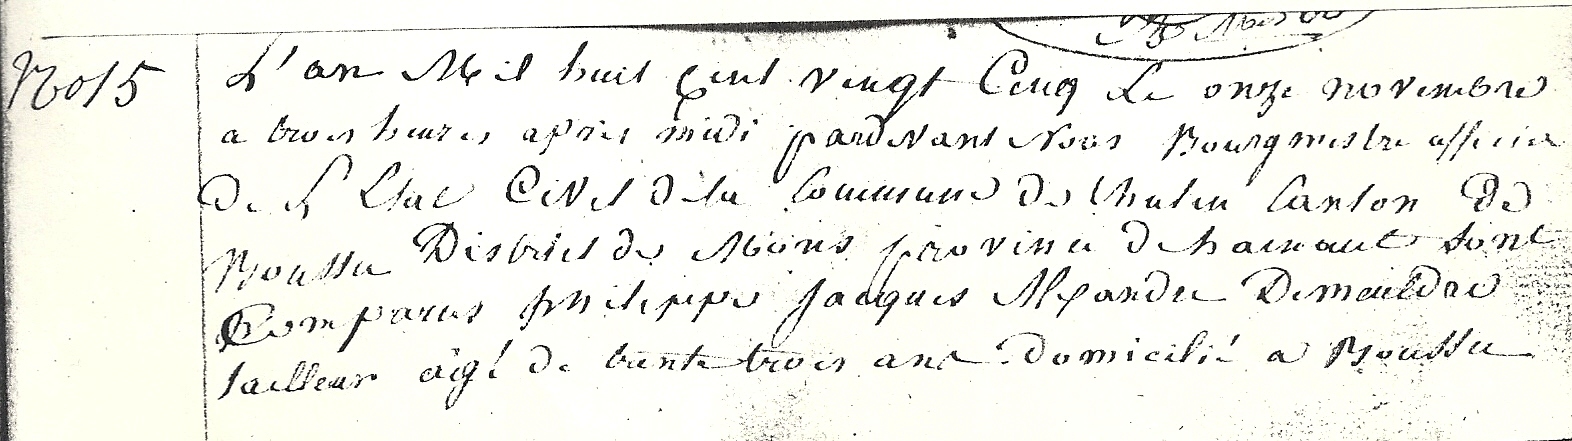 No 15
L'an Mil huit Cent vingt Cinq Le onze novembre
a trois heures apries midi pardevant Nous Bourgmestre officier
de L'Etat Civil dela Commune de thulin Canton de
Boussu District de Mons province de hainaut sont
Comparus philippe Jacques Alexandre Demeuldre
tailleur âgé de trente trois ans domicilié a Boussu